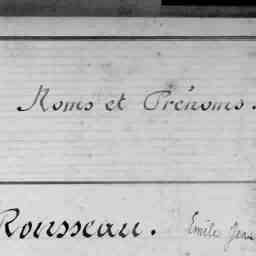 Noms et Prénoms.
Rousseau. Emile Jean